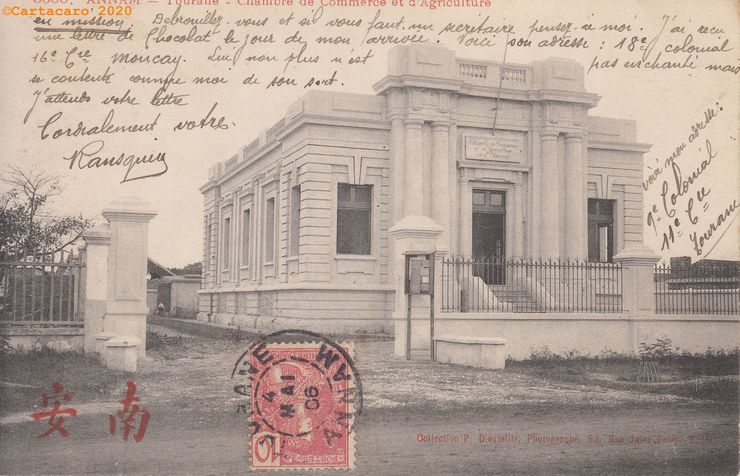 ©Cartacaro 2020
ANNAM - Tourane - Chambre de Commerce et d'Agriculture
en mission. Debrouillez-vous et si vous faut un secritaire pensez à moi. J'ai recu
une lettre de Chocolat le jour de mon arrivée. Voici son adresse : 18e colonial
16e Cie Moncay. Lui non plus n'est pas enchanté mais
se contente comme moi de son sort.
J'attends votre lettre
Cordialement votre.
voici mon adresse :
9e Colonial
11e Cie
Tourane
Chambre de Commerce
TOURANE
4 MAI 06
ANNAM
安南
Collection P. Dieulefils, Photographe, 53, Rue Jules Ferry,